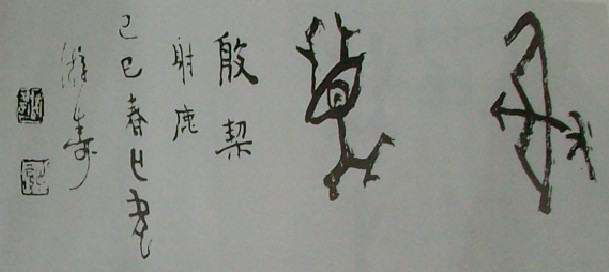 射鹿
殷契
射鹿
己巳春
游寿